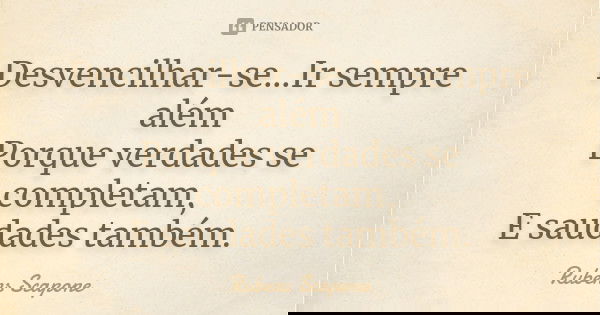 PENSADOR
Desvencilhar-se...Ir sempre
além
Porque verdades se
completam,
E saudades também.
Rubens Scapone